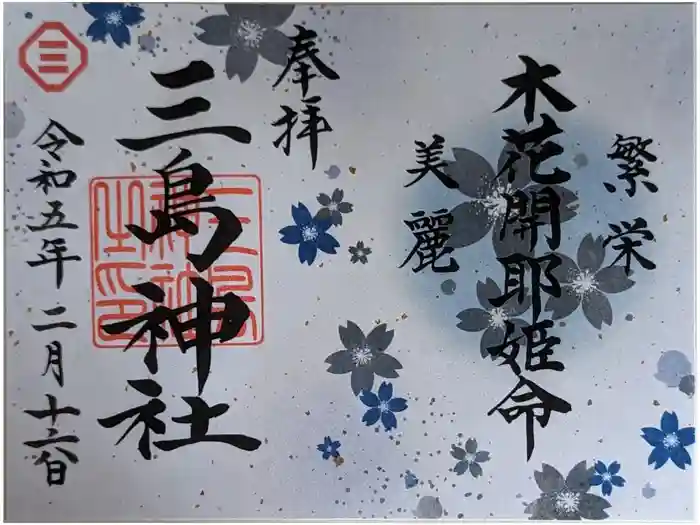 繁栄
木花開耶姫命
美麗
奉拝
三島神社
三島神社之印
令和五年二月十六日
三